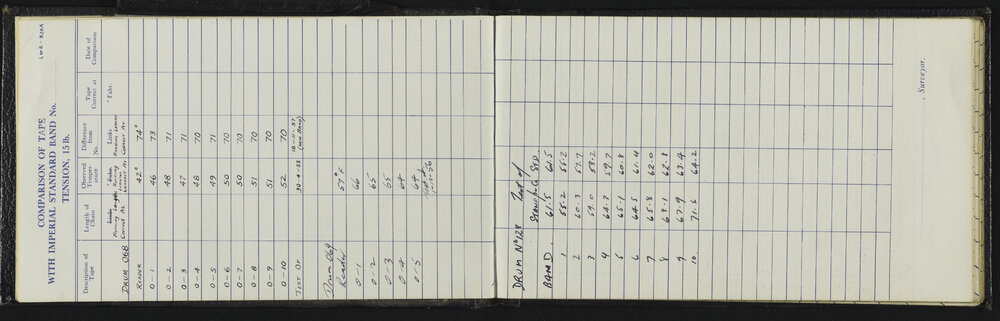 LWB - R26A
COMPARISON OF TAPE
WITH IMPERIAL STANDARD BAND No.
TENSION, 15 lb.
Description of Tape | Length of Chain | Observed Temperature | Difference from No. | Tape Correct at | Date of Comparison
Links | Links | ° Fahr.
Running Length Correct At | Correct At | Correct At
DRUM 068
READER 42° 74°
0-1 46 73
0-2 48 71
0-3 47 71
0-4 48 70
0-5 49 71
0-6 50 70
0-7 50 70
0-8 51 70
0-9 51 70
0-10 52 70
TEST OK 30-4-58 18-11-57
(NEW BAND)
Drum 069
Reader 57° F
0-1 66
0-2 65
0-3 65
0-4 64
0-5 64°
DRUM No 128 Test of
BAND Standard STD
61.5 61.5
1 55.2 55.2
2 60.3 57.7
3 59.0 58.2
4 64.7 59.7
5 65.1 60.8
6 64.5 61.4
7 65.8 62.0
8 68.1 62.8
9 67.9 63.4
10. 71.6 64.2
, Surveyor.